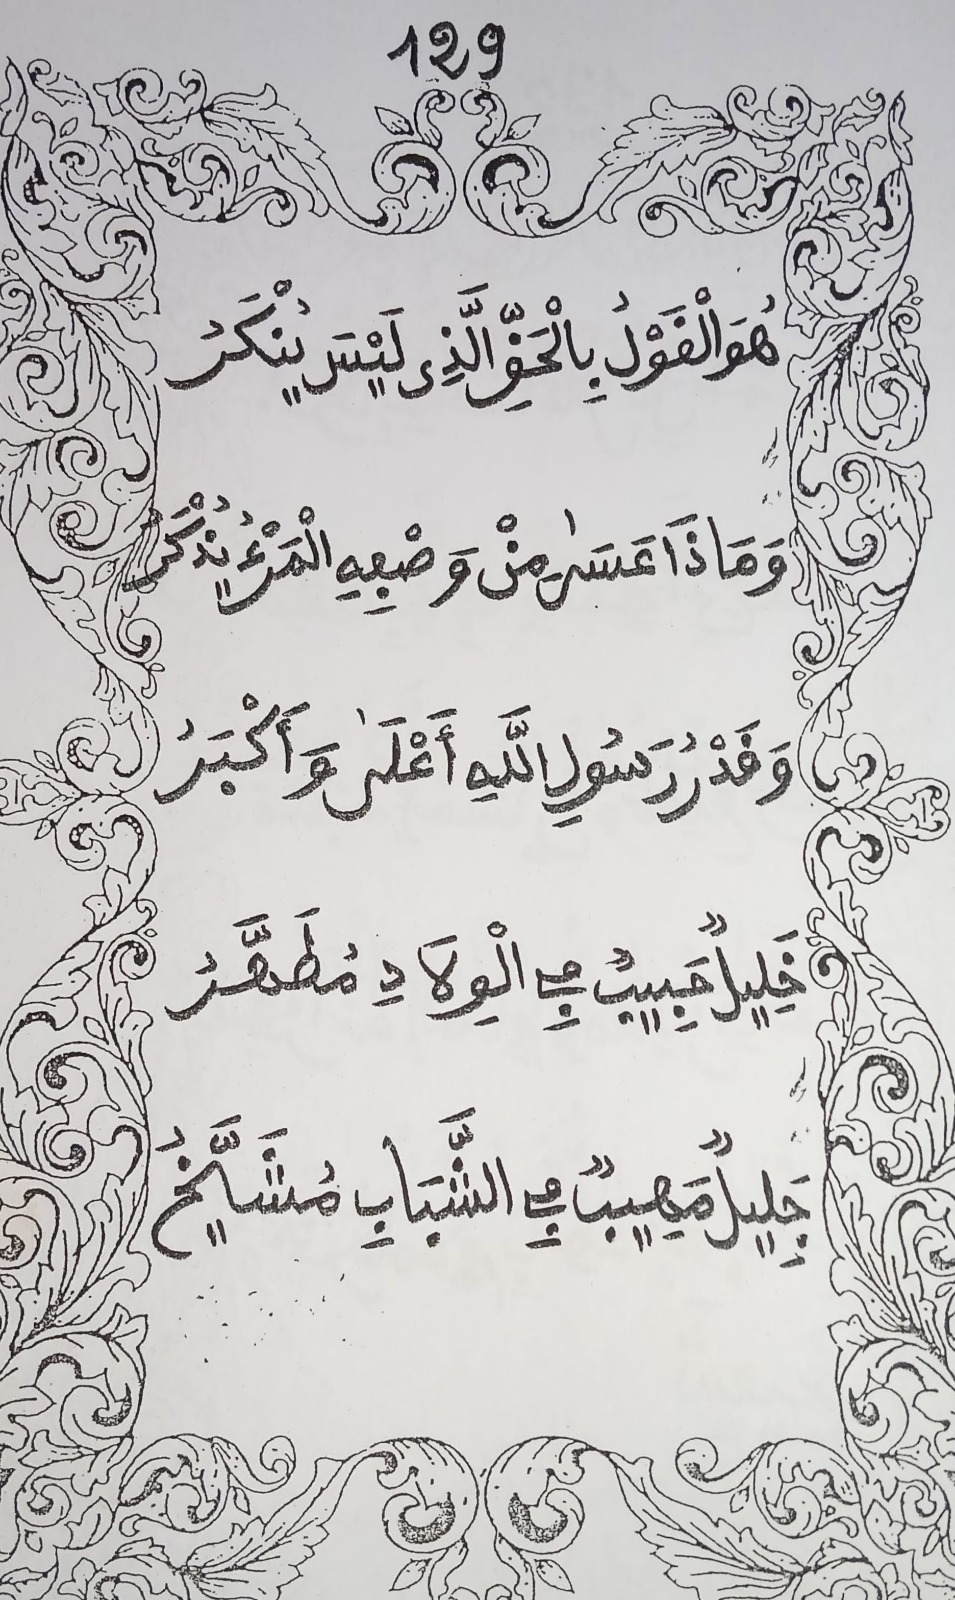 129
هُوَ الْقَوْلُ بِالْحَقِّ الَّذِي لَيْسَ يُنْكَرُ
وَمَاذَا عَسَىٰ مِنْ وَصْفِهِ الْمَرْءُ يُذْكَرُ
وَقَدْرُ رَسُولِ اللَّهِ أَعْلَىٰ وَأَكْبَرُ
خَلِيلٌ حَبِيبٌ فِي الْوِلَادِ مُطَهَّرُ
جَلِيلٌ مَهِيبٌ فِي الشَّبَابِ مُشَيَّخُ